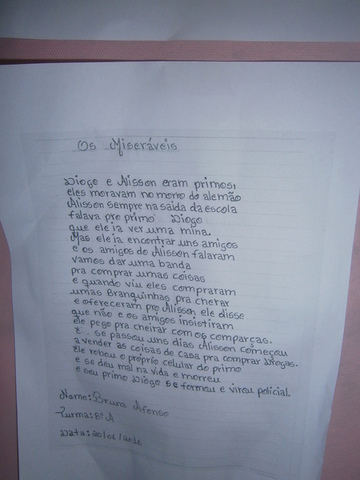 Os Miseráveis
Diogo e Alisson eram primos,
eles moravam no morro do alemão
Alisson sempre na saida da escola
falava pro primo Diogo
que ele ia ver uma mina.
Mas ele ia encontrar uns amigos
e os amigos do Alisson falaram
vamos dar uma banda
pra comprar umas coisas
e quando viu eles compraram
umas Branquinhas pra cheirar
e ofereceram pro Alisson ele disse
que não e os amigos insistiram
ele pego pra cheirar com os comparças.
E se passou uns dias Alisson começou
a vender as coisas de casa pra comprar drogas.
Ele robou o própro celular do primo
e se deu mal na vida e morreu
e seu primo Diogo se formou e virou policial.
Name: Bruna Afonso
Turma: 8ª A
Data: